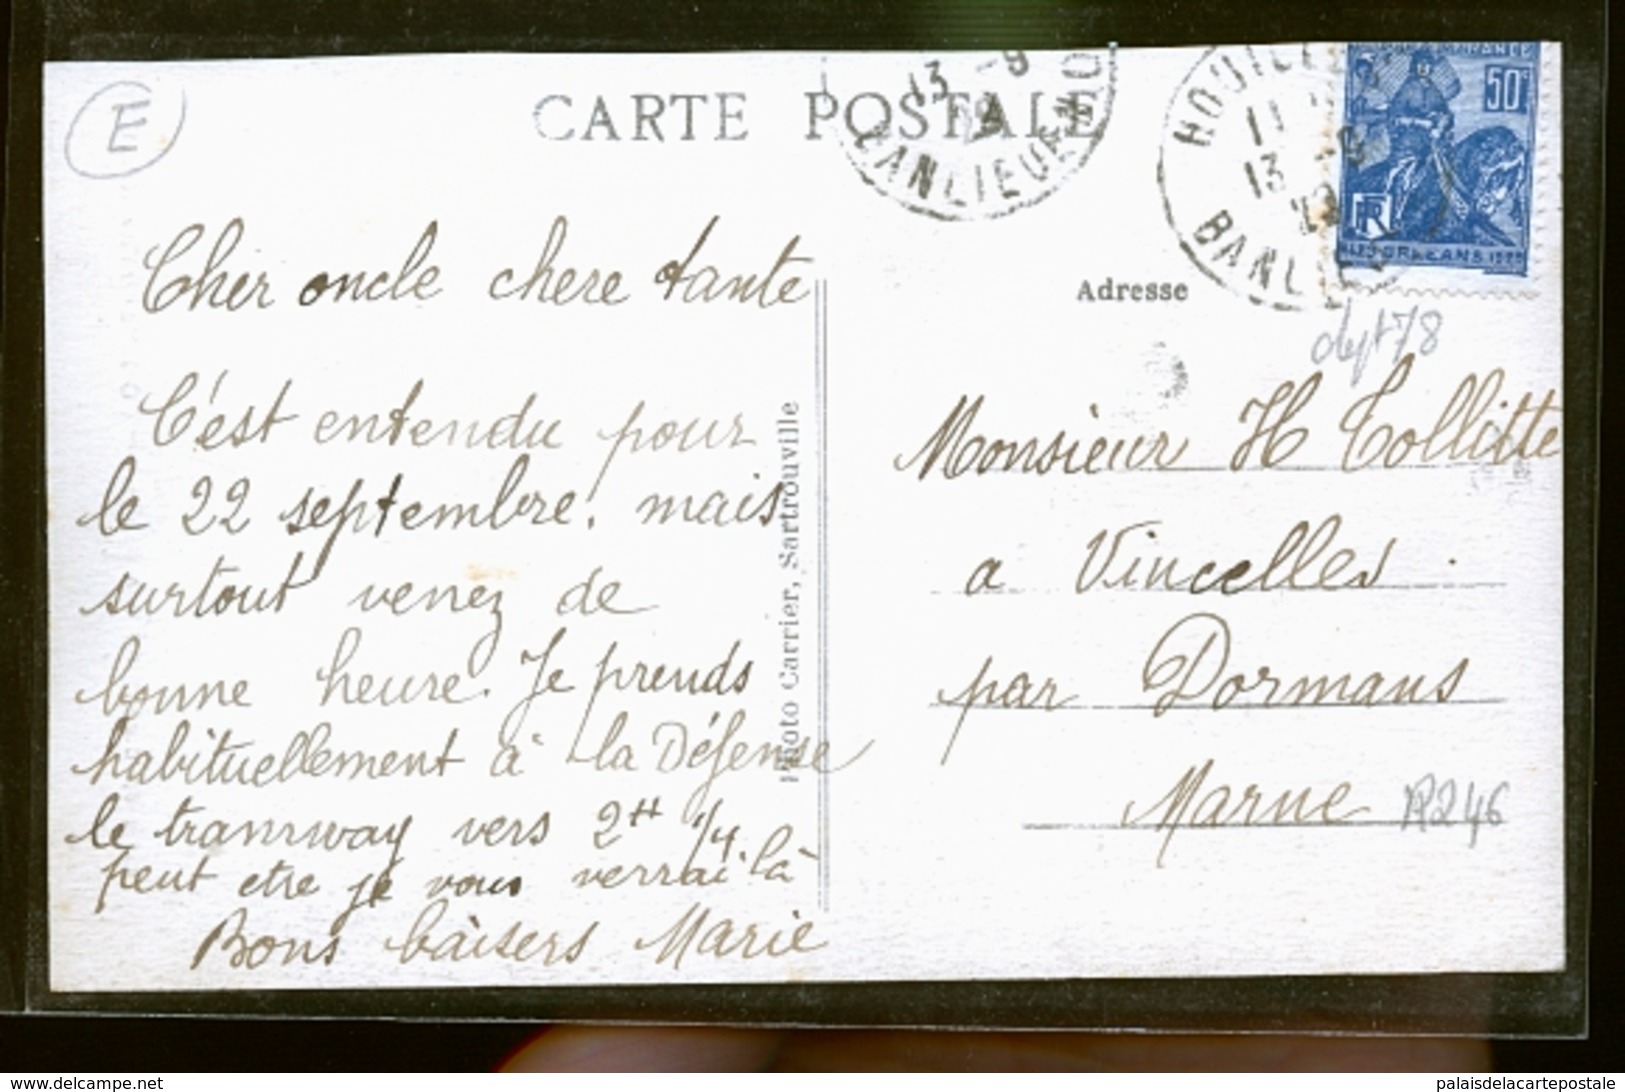 E
CARTE POSTALE
13 -9
BANLIEUE NO
HOUILLES
11
13 -9
29
BANLIEUE
50c
RF
ORLEANS 1929
Cher oncle chere tante
Adresse
dept 78
C'est entendu pour
le 22 septembre. mais
surtout venez de
bonne heure. Je prends
habituellement à la Défense
le tramway vers 2H 1/4.
peut etre je vous verrai là
Bons baisers Marie
Photo Carrier, Sartrouville
Monsieur H Collitte
a Vincelles
par Dormans
Marne
R246
www.delcampe.net
palaisdelacartepostale